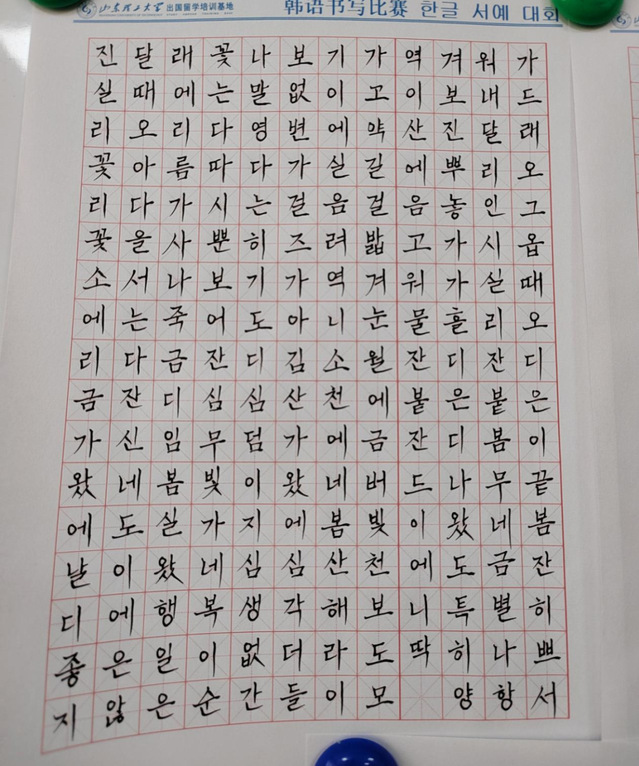 山东理工大学 出国留学培训基地 韩语书写比赛 한글 서예 대회
진달래꽃나보기가역겨워가
실때에는말없이고이보내드
리오리다영변에약산진달래
꽃아름따다가실길에뿌리오
리다가시는걸음걸음놓인그
꽃을사뿐히즈려밟고가시옵
소서나보기가역겨워가실때
에는죽어도아니눈물흘리오
리다금잔디김소월잔디잔디
금잔디심심산천에붙은붙은
가신임무덤가에금잔디봄이
왔네봄빛이왔네버드나무끝
에도실가지에봄빛이왔네봄
날이왔네심심산천에도금잔
디에행복생각해보니특별히
좋은일이없더라도딱히나쁘
지않은순간들이모 양항서